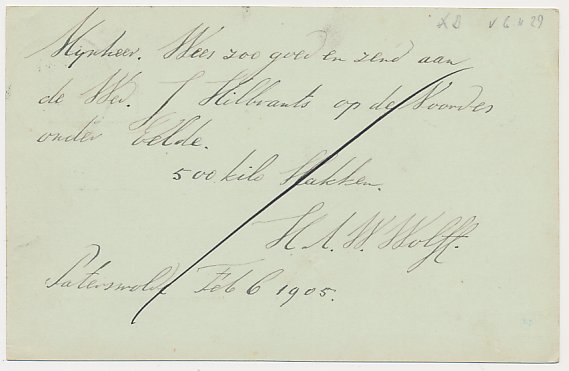 Mijnheer. Wees zoo goed en zend aan
de Wed. J Hilbrants op de Voordes
onder Eelde.
500 kilo Slakken.
H. A. W. Wolfft.
Paterswolde Feb 6 1905.